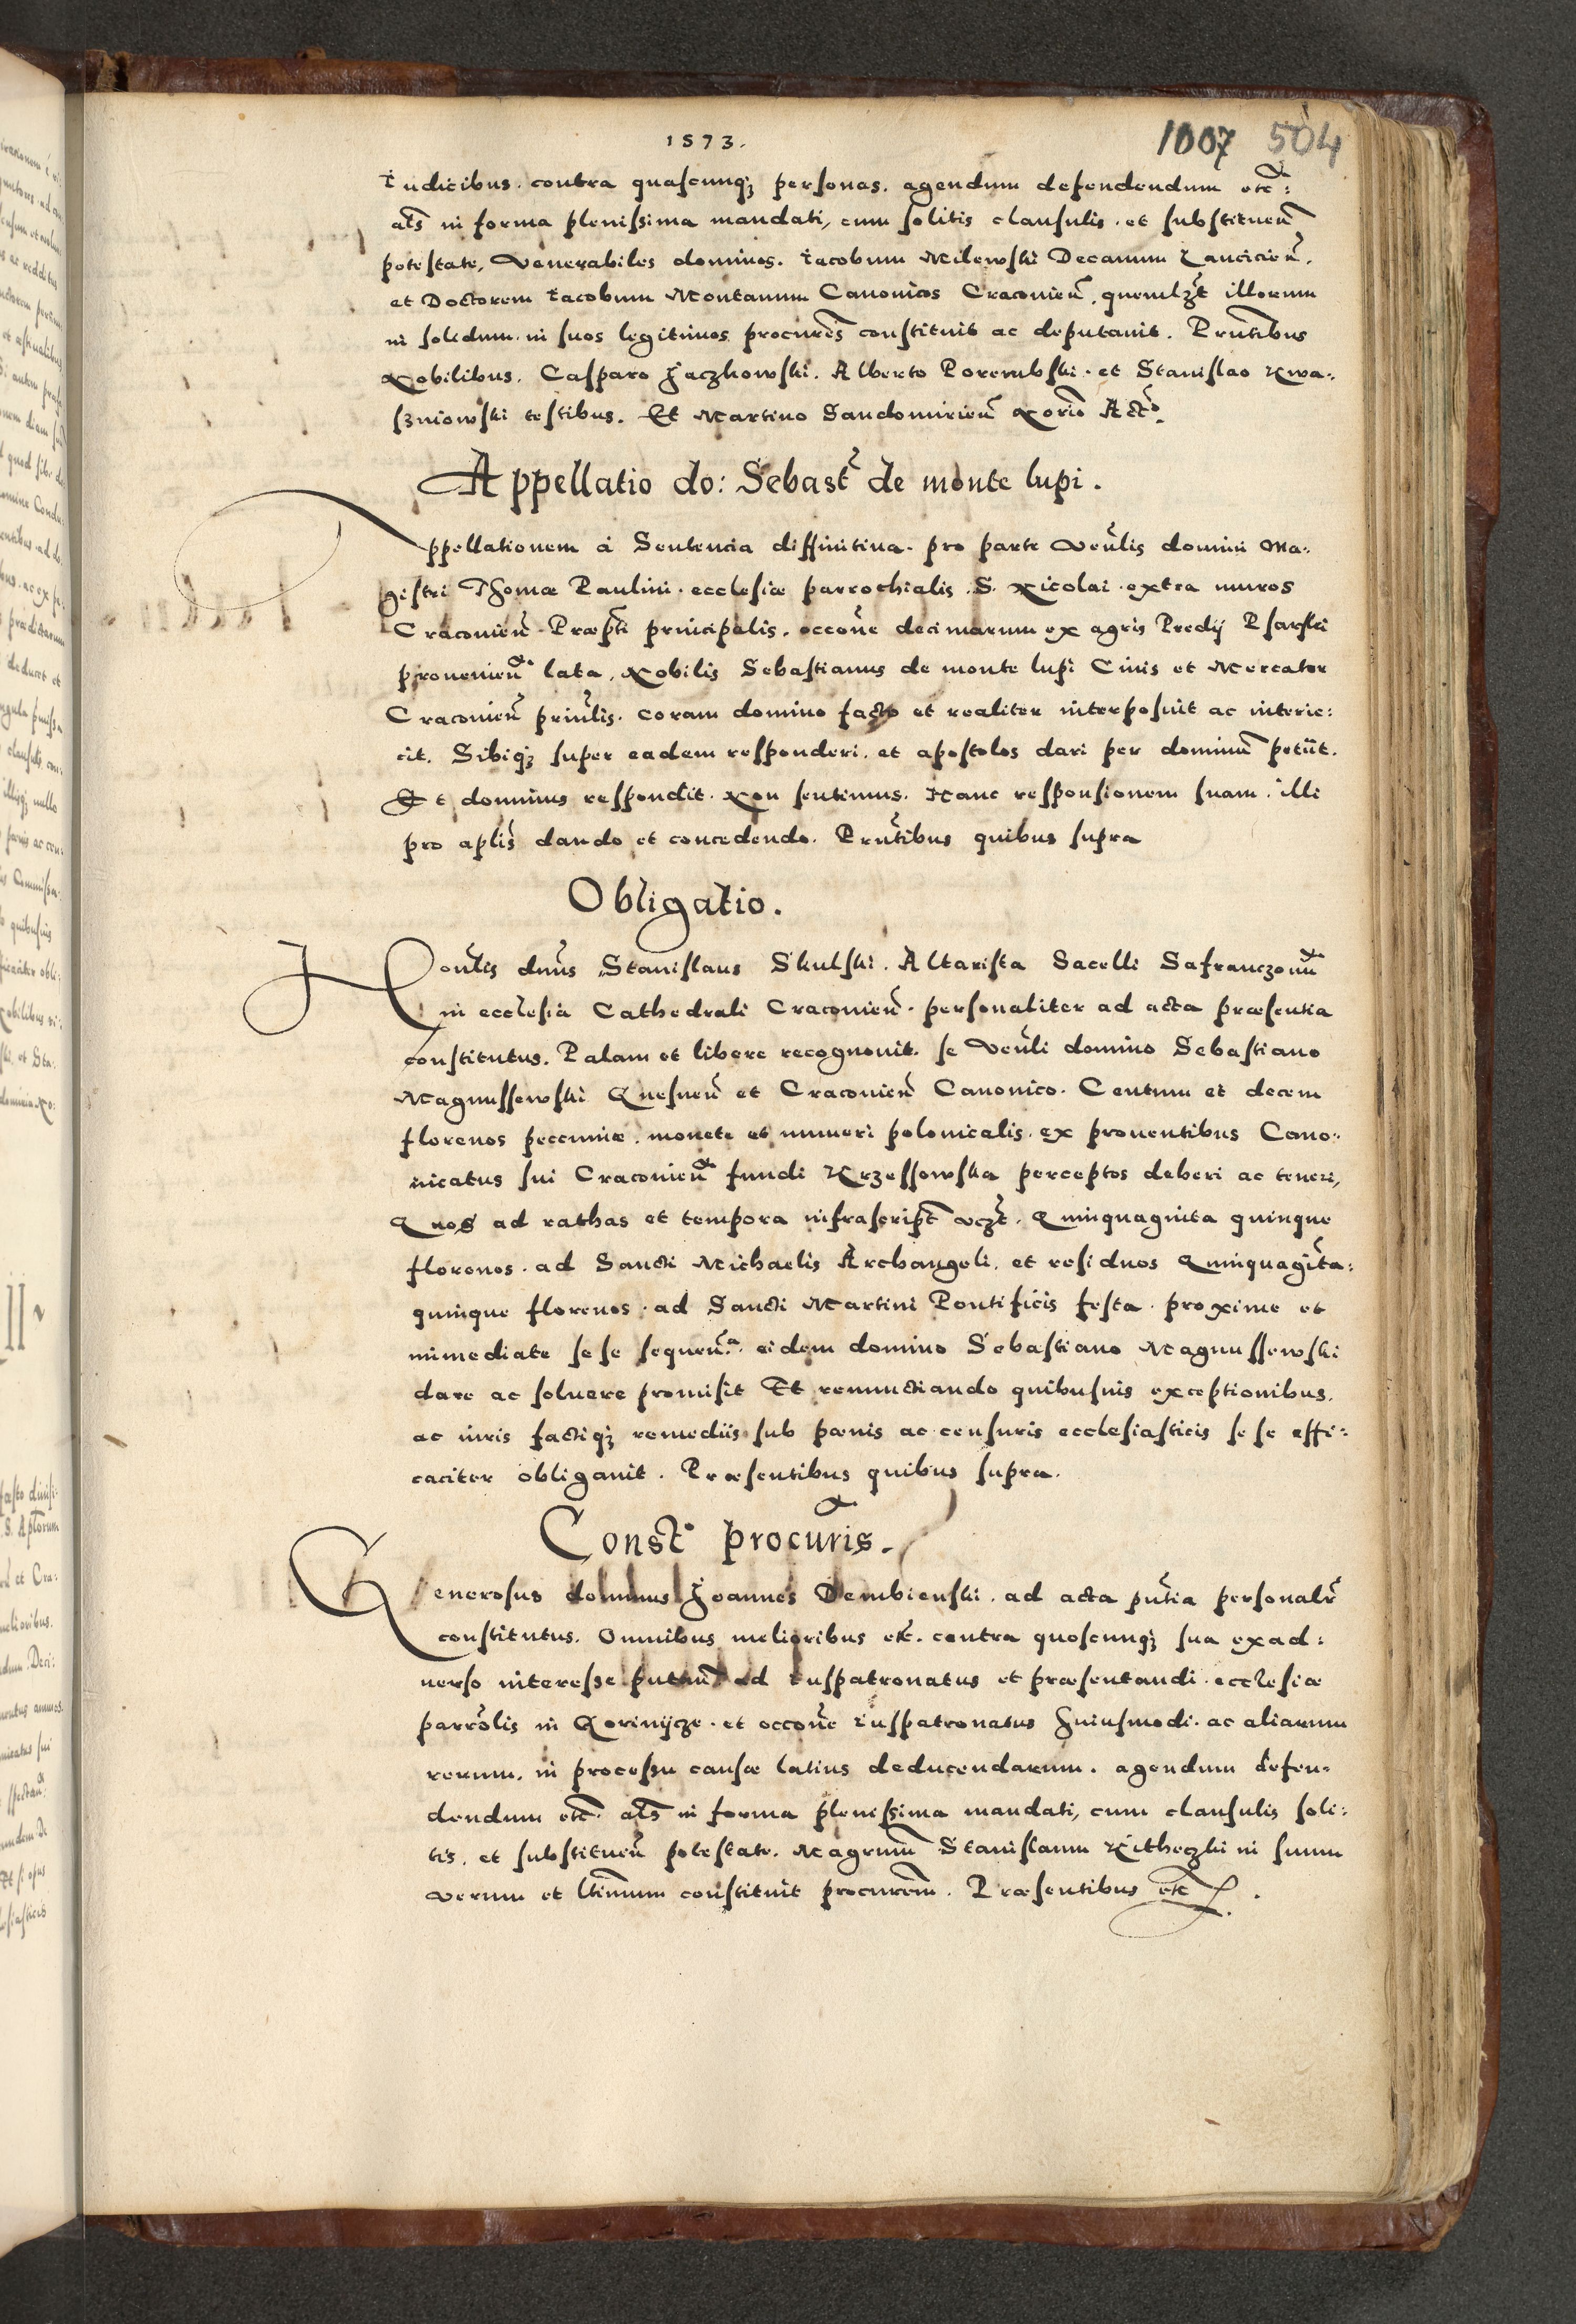 1573.
1007 504
Iudicibus. contra quascunq₃ personas. agendum defendendum etc̃:
al̃s in forma plenissima mandati, cum solitis clausulis. et substituen̄
potestate, Venerabiles dominos. Iacobum Milewski Decanum Lancicień.
et Doctorem Iacobum Montanum Canonicos Cracovień. quemlzt̃ illorum
in solidum. in suos legitimos procurẽs constituit ac deputavit. Prñtibus
Nobilibus. Casparo Jaczkowski. Alberto Porembski. et Stanislao Kwa:
szniowski testibus. Et Martino Sandomirień Norio Act̃o.
Appellatio do: Sebast̃ de monte lupi.
Appellationem à Sententia diffinitiva. pro parte Venl̃is domini Ma:
gistri Thomæ Paulini. ecclesiæ parrochialis. S. Nicolai. extra muros
Cracovień. Præpti principalis. occõne decimarum ex agris Predij Psarski
provenień lata, Nobilis Sebastianus de monte lupi Civis et Mercator
Cracovień prinl̃is. coram domino facto et realiter interposuit ac interie:
cit. Sibiq₃ super eadem responderi. et apostolos dari per dominū petiit.
Et dominus respondit. Non sentimus. Hanc responsionem suam. illi
pro apl̃is dando et concedendo. Prñtibus quibus supra
Obligatio.
Honl̃is dnũs Stanislaus Skulski. Altarista Sacelli Safranczonũ
in ecclesia Cathedrali Cracovień. personaliter ad acta præsentia
constitutus. Palam et libere recognovit. se Venl̃i domino Sebastiano
Magnussewski Gnesneń et Cracovień Canonico. Centum et decem
florenos peccuniæ. monete et numeri polonicalis. ex proventibus Cano:
nicatus sui Cracovień fundi Krzessowska perceptos deberi ac teneri,
Quos ad rathas et tempora infrascript̃ vczt̃. Quinquaginta quinque
florenos. ad Sancti Michaelis Archangeli. et residuos Quinquagĩta:
quinque florenos. ad Sancti Martini Pontificis festa. proxime et
immediate sese sequeñ.ª eidem domino Sebastiano Magnussewski
dare ac solvere promisit Et renunctiando quibusvis exceptionibus.
ac iuris factiq₃ remediis sub pœnis ac censuris ecclesiasticis sese effi:
caciter obligavit. Præsentibus quibus supra.
Const̃o procuris.
Generosus dominus Joannes Dembienski. ad acta pñtia personalr̃
constitutus. Omnibus melioribus etc̃. contra quoscunq₃ sua exad:
verso interesse putań ad Iuspatronatus et præsentandi. ecclesiæ
parrõlis in Gorinijcze. et occõne Iuspatronatus huiusmodi. ac aliarum
rerum, in processu causæ latius deducendarum. agendum defen:
dendum etc̃. al̃s in forma plenissima mandati, cum clausulis soli:
tis. et substitueń potestate. Magrum̃ Stanislaum Kitheczki in suum
verum et ltĩmum constituit procurem̃. Præsentibus etc̃.